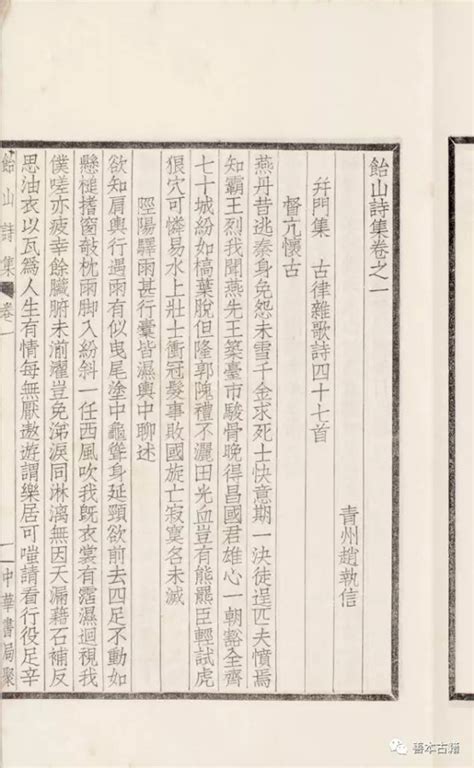 飴山詩集卷之一
青州趙執信
幷門集　古律雜歌詩四十七首
督亢懷古
燕丹昔逃秦身免怨未雪千金求死士快意期一決徒逞匹夫憤焉
知霸王烈我聞燕先王築臺市駿骨晚得昌國君雄心一朝豁全齊
七十城紛如槁葉脫但隆郭隗禮不灑田光血豈有熊羆臣輕試虎
狼穴可憐易水上壯士衝冠髮事敗國旋亡寂寞名未滅
陘陽驛雨甚行橐皆濕輿中聊述
欲知肩輿行遇雨有似曳尾塗中龜聳身延頸欲前去四足不動如
懸槌搘窗敧枕雨腳入紛斜一任西風吹我旣衣裳有霑濕迴視我
僕嗟亦疲幸餘臟腑未湔濯豈免涕淚同淋漓無因天漏藉石補反
思油衣以瓦爲人生有情每無厭遨遊謂樂居可嗤請看行役足辛
飴山詩集　卷一　一　中華書局聚
善本古籍